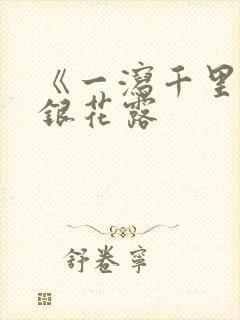 《一瀉千里
銀花露
舒卷寧